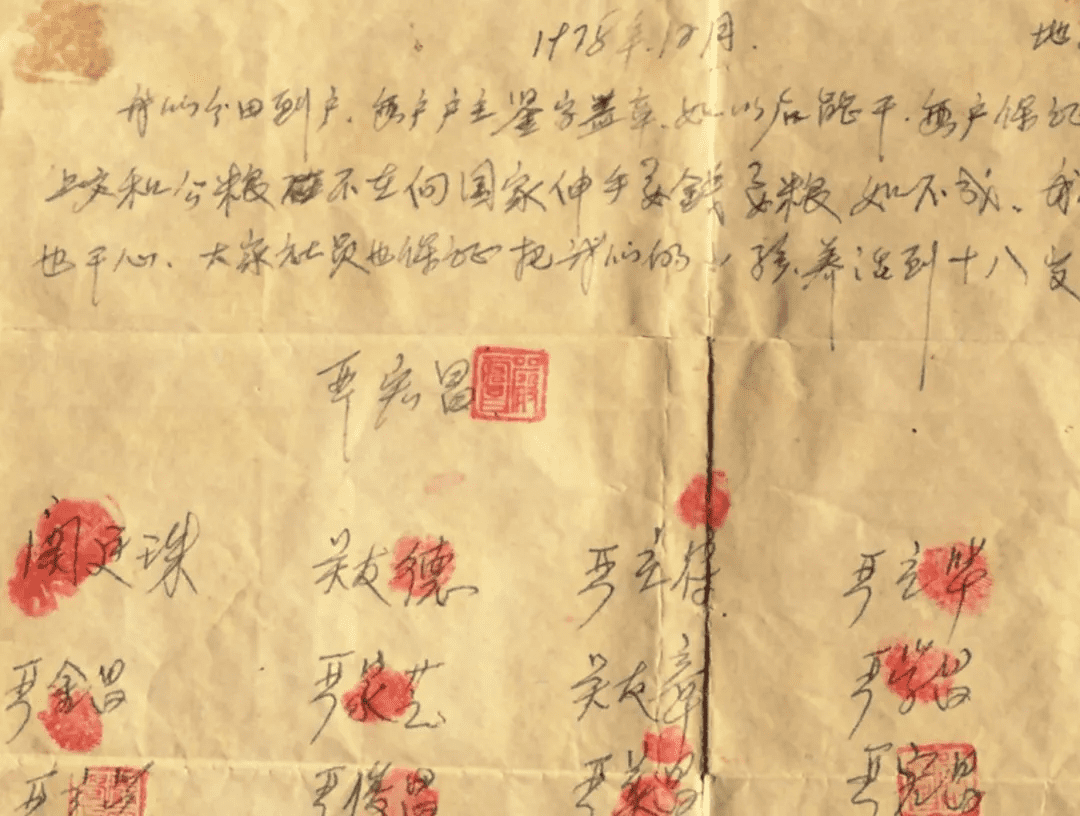 1978年.12月. 地
我们分田到户.每户户主鉴字盖章.如以后能干.每户保证
上交和公粮 不在向国家伸手要钱要粮 如不成.我
也干心.大家社员也保证把我们的小孩养活到十八岁
严宏昌
关廷珠 关友德 严立符 严立华
严金昌 严家芝 关友章 严学昌
严俊昌 严美昌 严宏昌